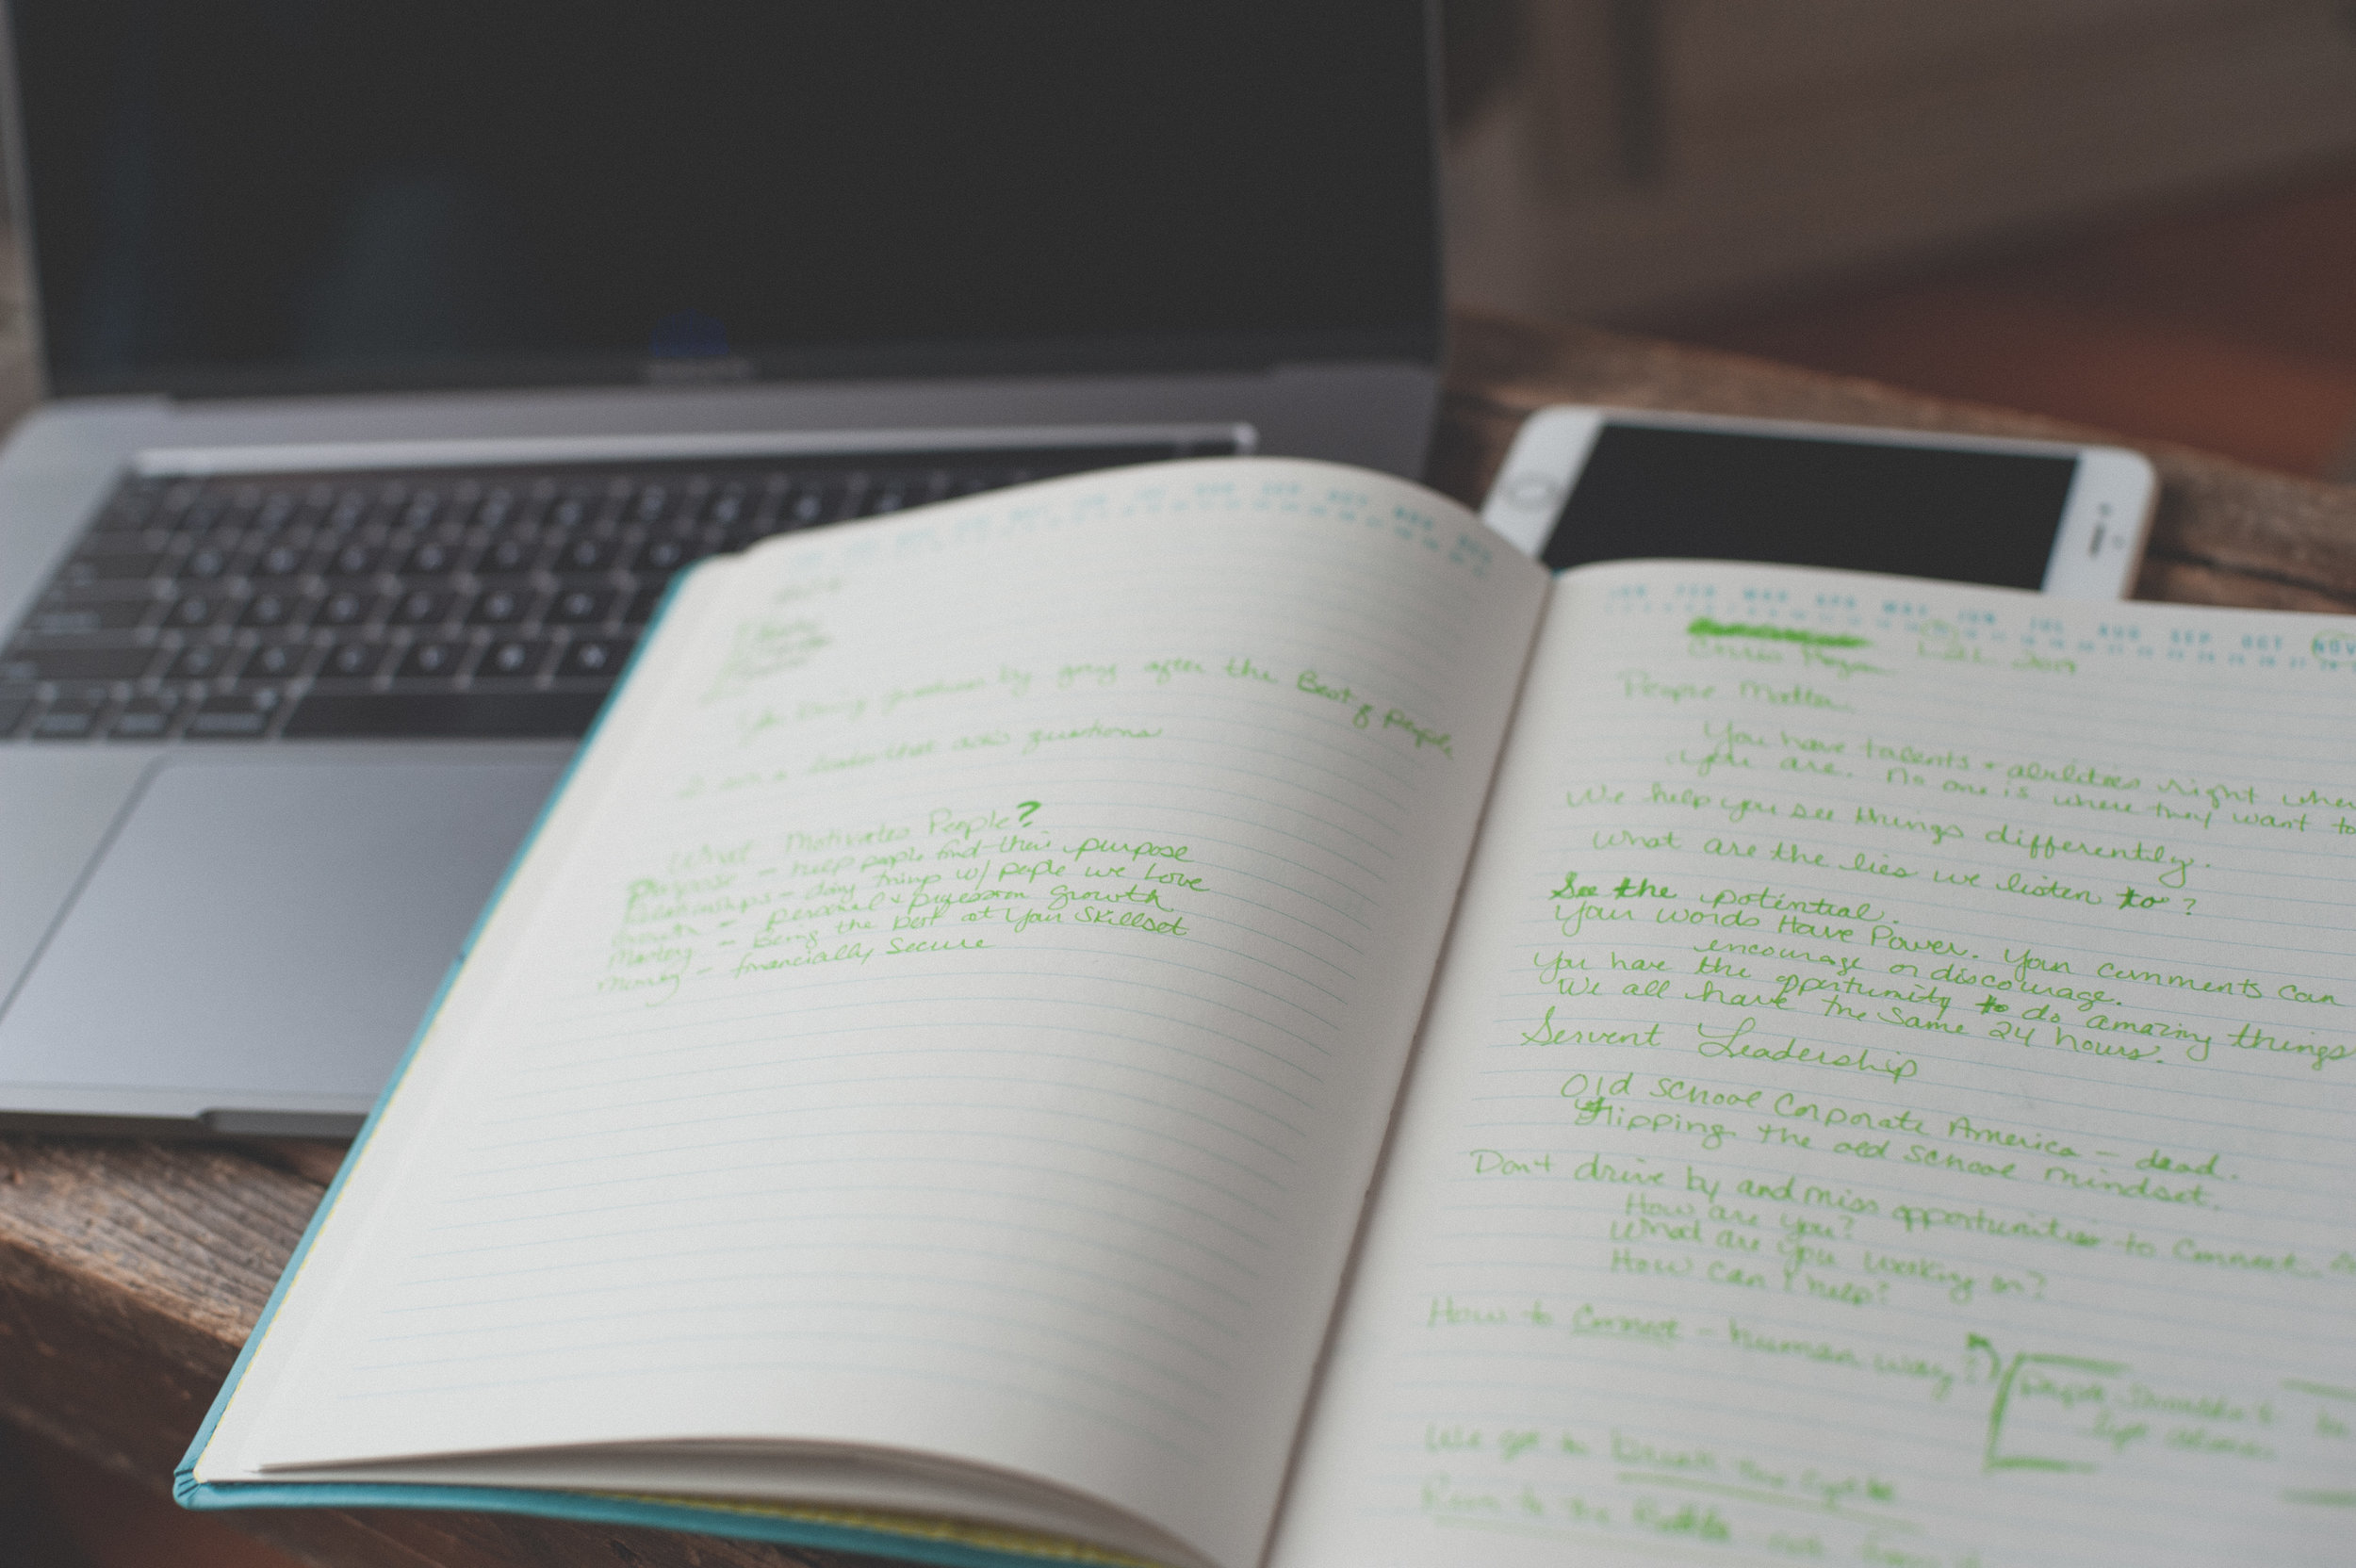 by going after the Best of people
a leader that asks questions
What Motivates People?
Purpose - help people find their purpose
Relationships - doing things w/ people we love
Growth - personal & profession growth
Mastery - Being the best at your skillset
Money - financially secure
JAN FEB MAR APR MAY JUN JUL AUG SEP OCT NOV
People Matter
You have talents + abilities right where
you are. No one is where they want to
We help you see things differently.
What are the lies we listen to?
See the potential.
Your words Have Power. Your comments can
encourage or discourage.
You have the opportunity to do amazing things
We all have the same 24 hours.
Servent Leadership
Old School Corporate America - dead.
Flipping the old school mindset.
Don't drive by and miss opportunities to connect.
How are you?
What are you working on?
How can I help?
How to Connect - human way?
We get to break the cycle
Run to the